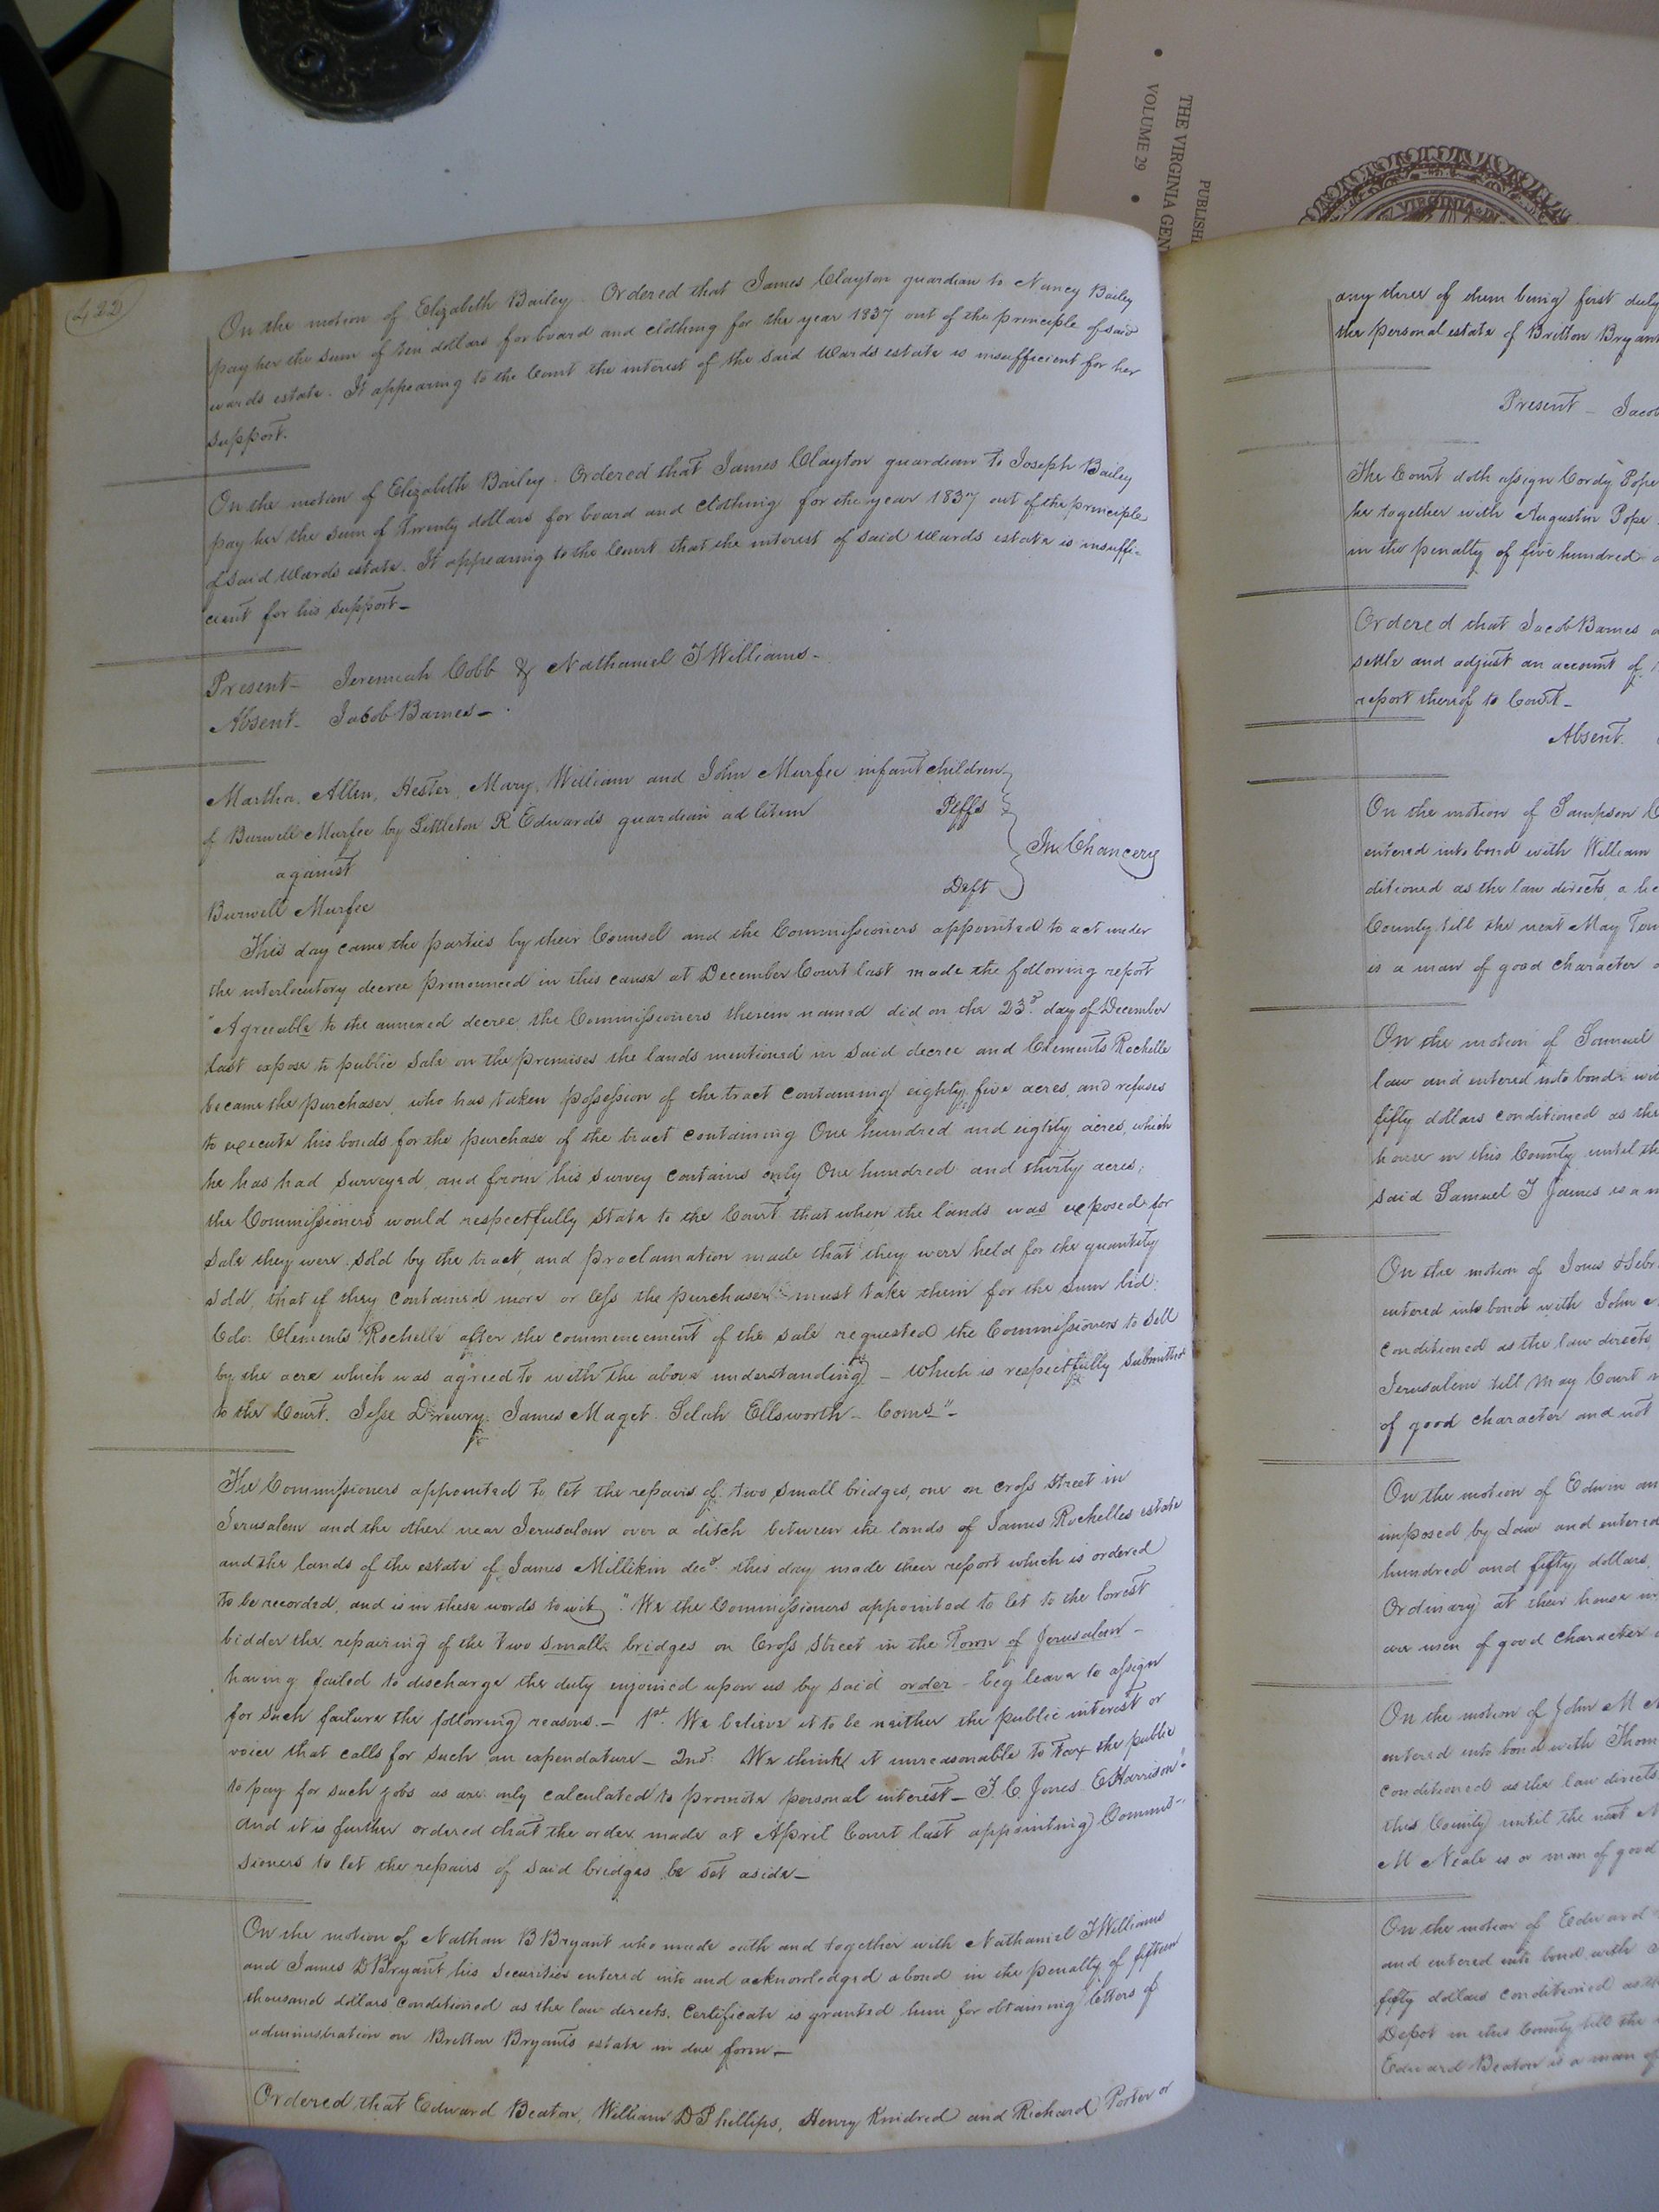 PUBLISH
THE VIRGINIA GEN
• VOLUME 29 •
VIRGINIA
422
On the motion of Elizabeth Bailey. Ordered that James Clayton guardian to Nancy Bailey
pay her the sum of ten dollars for board and clothing for the year 1837 out of the principle of said
wards estate. It appearing to the Court the interest of the said wards estate is insufficient for her
support.
On the motion of Elizabeth Bailey. Ordered that James Clayton guardian to Joseph Bailey
pay her the sum of Twenty dollars for board and clothing for the year 1837 out of the principle
of said wards estate. It appearing to the Court that the interest of said wards estate is insuffi-
cient for his support—
Present— Jeremiah Cobb & Nathaniel T Williams—
Absent— Jacob Barnes—
Martha, Allen, Hester, Mary, William and John Murfee infant children
of Burwell Murfee by Littleton R Edwards guardian ad litem Plffs
against In Chancery
Burwell Murfee Deft
This day came the parties by their Counsel and the Commissioners appointed to act under
the interlocutory decree pronounced in this cause at December Court last made the following report
"Agreeable to the annexed decree the Commissioners therein named did on the 23d. day of December
last expose to public sale on the premises the lands mentioned in said decree and Clements Rochelle
became the purchaser, who has taken possession of the tract containing eighty five acres, and refuses
to execute his bonds for the purchase of the tract containing One hundred and eighty acres, which
he has had surveyed, and from his survey contains only One hundred and thirty acres;
the Commissioners would respectfully state to the Court that when the lands was exposed for
sale they were sold by the tract, and proclamation made that they were held for the quantity
sold, that if they contained more or less the purchaser must take them for the sum bid:
Colo: Clements Rochelle after the commencement of the sale requested the Commissioners to sell
by the acre which was agreed to with the above understanding— which is respectfully submitted
to the Court. Jesse Drewry. James Maget. Selah Ellsworth— Coms"—
The Commissioners appointed to let the repairs of two small bridges, one on Cross Street in
Jerusalem and the other near Jerusalem over a ditch between the lands of James Rochelles estate
and the lands of the estate of James Millikin decd. this day made their report which is ordered
to be recorded, and is in these words to wit, "We the Commissioners appointed to let to the lowest
bidder the repairing of the two small bridges on Cross Street in the Town of Jerusalem—
having failed to discharge the duty enjoined upon us by said order— beg leave to assign
for such failure the following reasons.— 1st. We believe it to be neither the public interest or
voice that calls for such an expendature— 2nd: We think it unreasonable to Tax the public
to pay for such jobs as are only calculated to promote personal interest— T. C Jones E Harrison"
And it is further ordered that the order made at April Court last appointing Commis-
sioners to let the repairs of said bridges be set aside—
On the motion of Nathan B Bryant who made oath and together with Nathaniel T Williams
and James D Bryant his securities entered into and acknowledged a bond in the penalty of fifteen
thousand dollars conditioned as the law directs. Certificate is granted him for obtaining letters of
administration on Britton Bryants estate in due form—
Ordered, that Edward Beaton, William D Phillips, Henry Kindred and Richard Porter or
any three of them being first duly
the personal estate of Britton Bryant
Present— Jacob
The Court doth assign Cordy Pope
he together with Augustin Pope
in the penalty of five hundred
Ordered that Jacob Barnes
settle and adjust an account of
report thereof to Court—
Absent.
On the motion of Sampson
entered into bond with William
ditioned as the law directs, a
County till the next May
is a man of good character
On the motion of Samuel
law and entered into bond
fifty dollars conditioned as the
house in this County until
said Samuel T James is a
On the motion of
entered into bond with John
conditioned as the law directs
Jerusalem till May Court
of good character and not
On the motion of Edwin
imposed by Law and entered
hundred and fifty dollars,
Ordinary at their house in
are men of good character
On the motion of John M
entered into bond with Thom
conditioned as the law directs
this County until the next
M Neale is a man of good
On the motion of Edward
and entered into bond with
fifty dollars conditioned as
Depot in this County till the
Edward Beaton is a man of